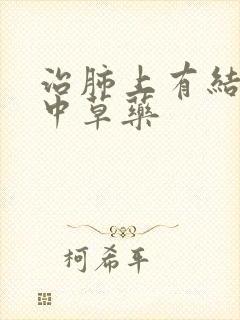 治肺上有結
中草藥
柯希平